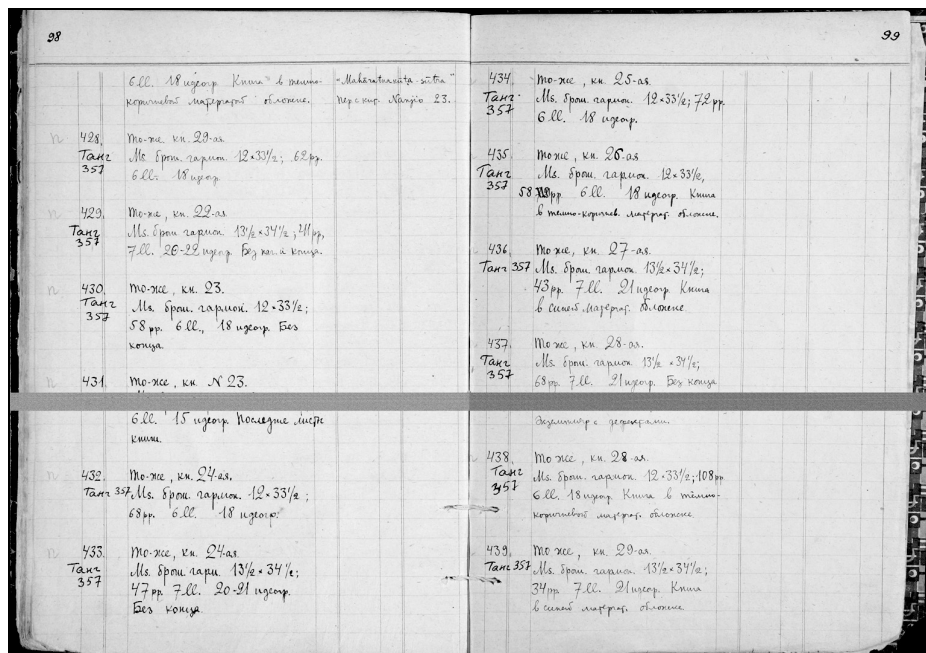 98
6 ll. 18 идеогр. Книга в темно-
коричневой матерчатой обложке.
"Mahāratnakūta-sūtra"
пер. с кит. Nanjio 23.
428.
Танг
357
То-же кн. 29-ая
Ms. брош. гармон. 12×33½; 62 pp.
6 ll. 18 идеогр.
429.
Танг
357
То-же, кн. 22-ая
Ms. брош. гармон. 13½×34½; 41 pp,
7 ll. 20-22 идеогр. Без нач. и конца.
430.
Танг
357
То-же, кн. 23.
Ms. брош. гармон. 12×33½;
58 pp. 6 ll., 18 идеогр. Без
конца.
431.
То-же, кн. N 23.
6 ll. 15 идеогр. Последние листы
книги.
432.
Танг 357
То-же, кн. 24-ая.
Ms. брош. гармон. 12×33½;
68 pp. 6 ll. 18 идеогр.
433.
Танг
357
То-же, кн. 24-ая
Ms. брош. гарм. 13½×34½;
47 pp. 7 ll. 20-21 идеогр.
Без конца.
99
434.
Танг
357
То-же, кн. 25-ая.
Ms. брош. гармон. 12×33½; 72 pp.
6 ll. 18 идеогр.
435.
Танг
357
То же, кн. 26-ая
Ms. брош. гармон. 12×33½,
58 pp. 6 ll. 18 идеогр. Книга
в темно-коричнев. матерчат. обложке.
436.
Танг 357
То-же, кн. 27-ая.
Ms. брош. гармон. 13½×34½;
43 pp. 7 ll. 21 идеогр. Книга
в синей матерчат. обложке.
437.
Танг
357
То же, кн. 28-ая.
Ms. брош. гармон. 13½×34½;
68 pp. 7 ll. 21 идеогр. Без конца
Экземпляр с дефектами.
438.
Танг
357
То же, кн. 28-ая.
Ms. брош. гармон. 12×33½; 108 pp
6 ll. 18 идеогр. Книга в темно-
коричневой матерчат. обложке.
439.
Танг 357
То же, кн. 29-ая
Ms. брош. гармон. 13½×34½;
34 pp. 7 ll. 21 идеогр. Книга
в синей матерчат. обложке.